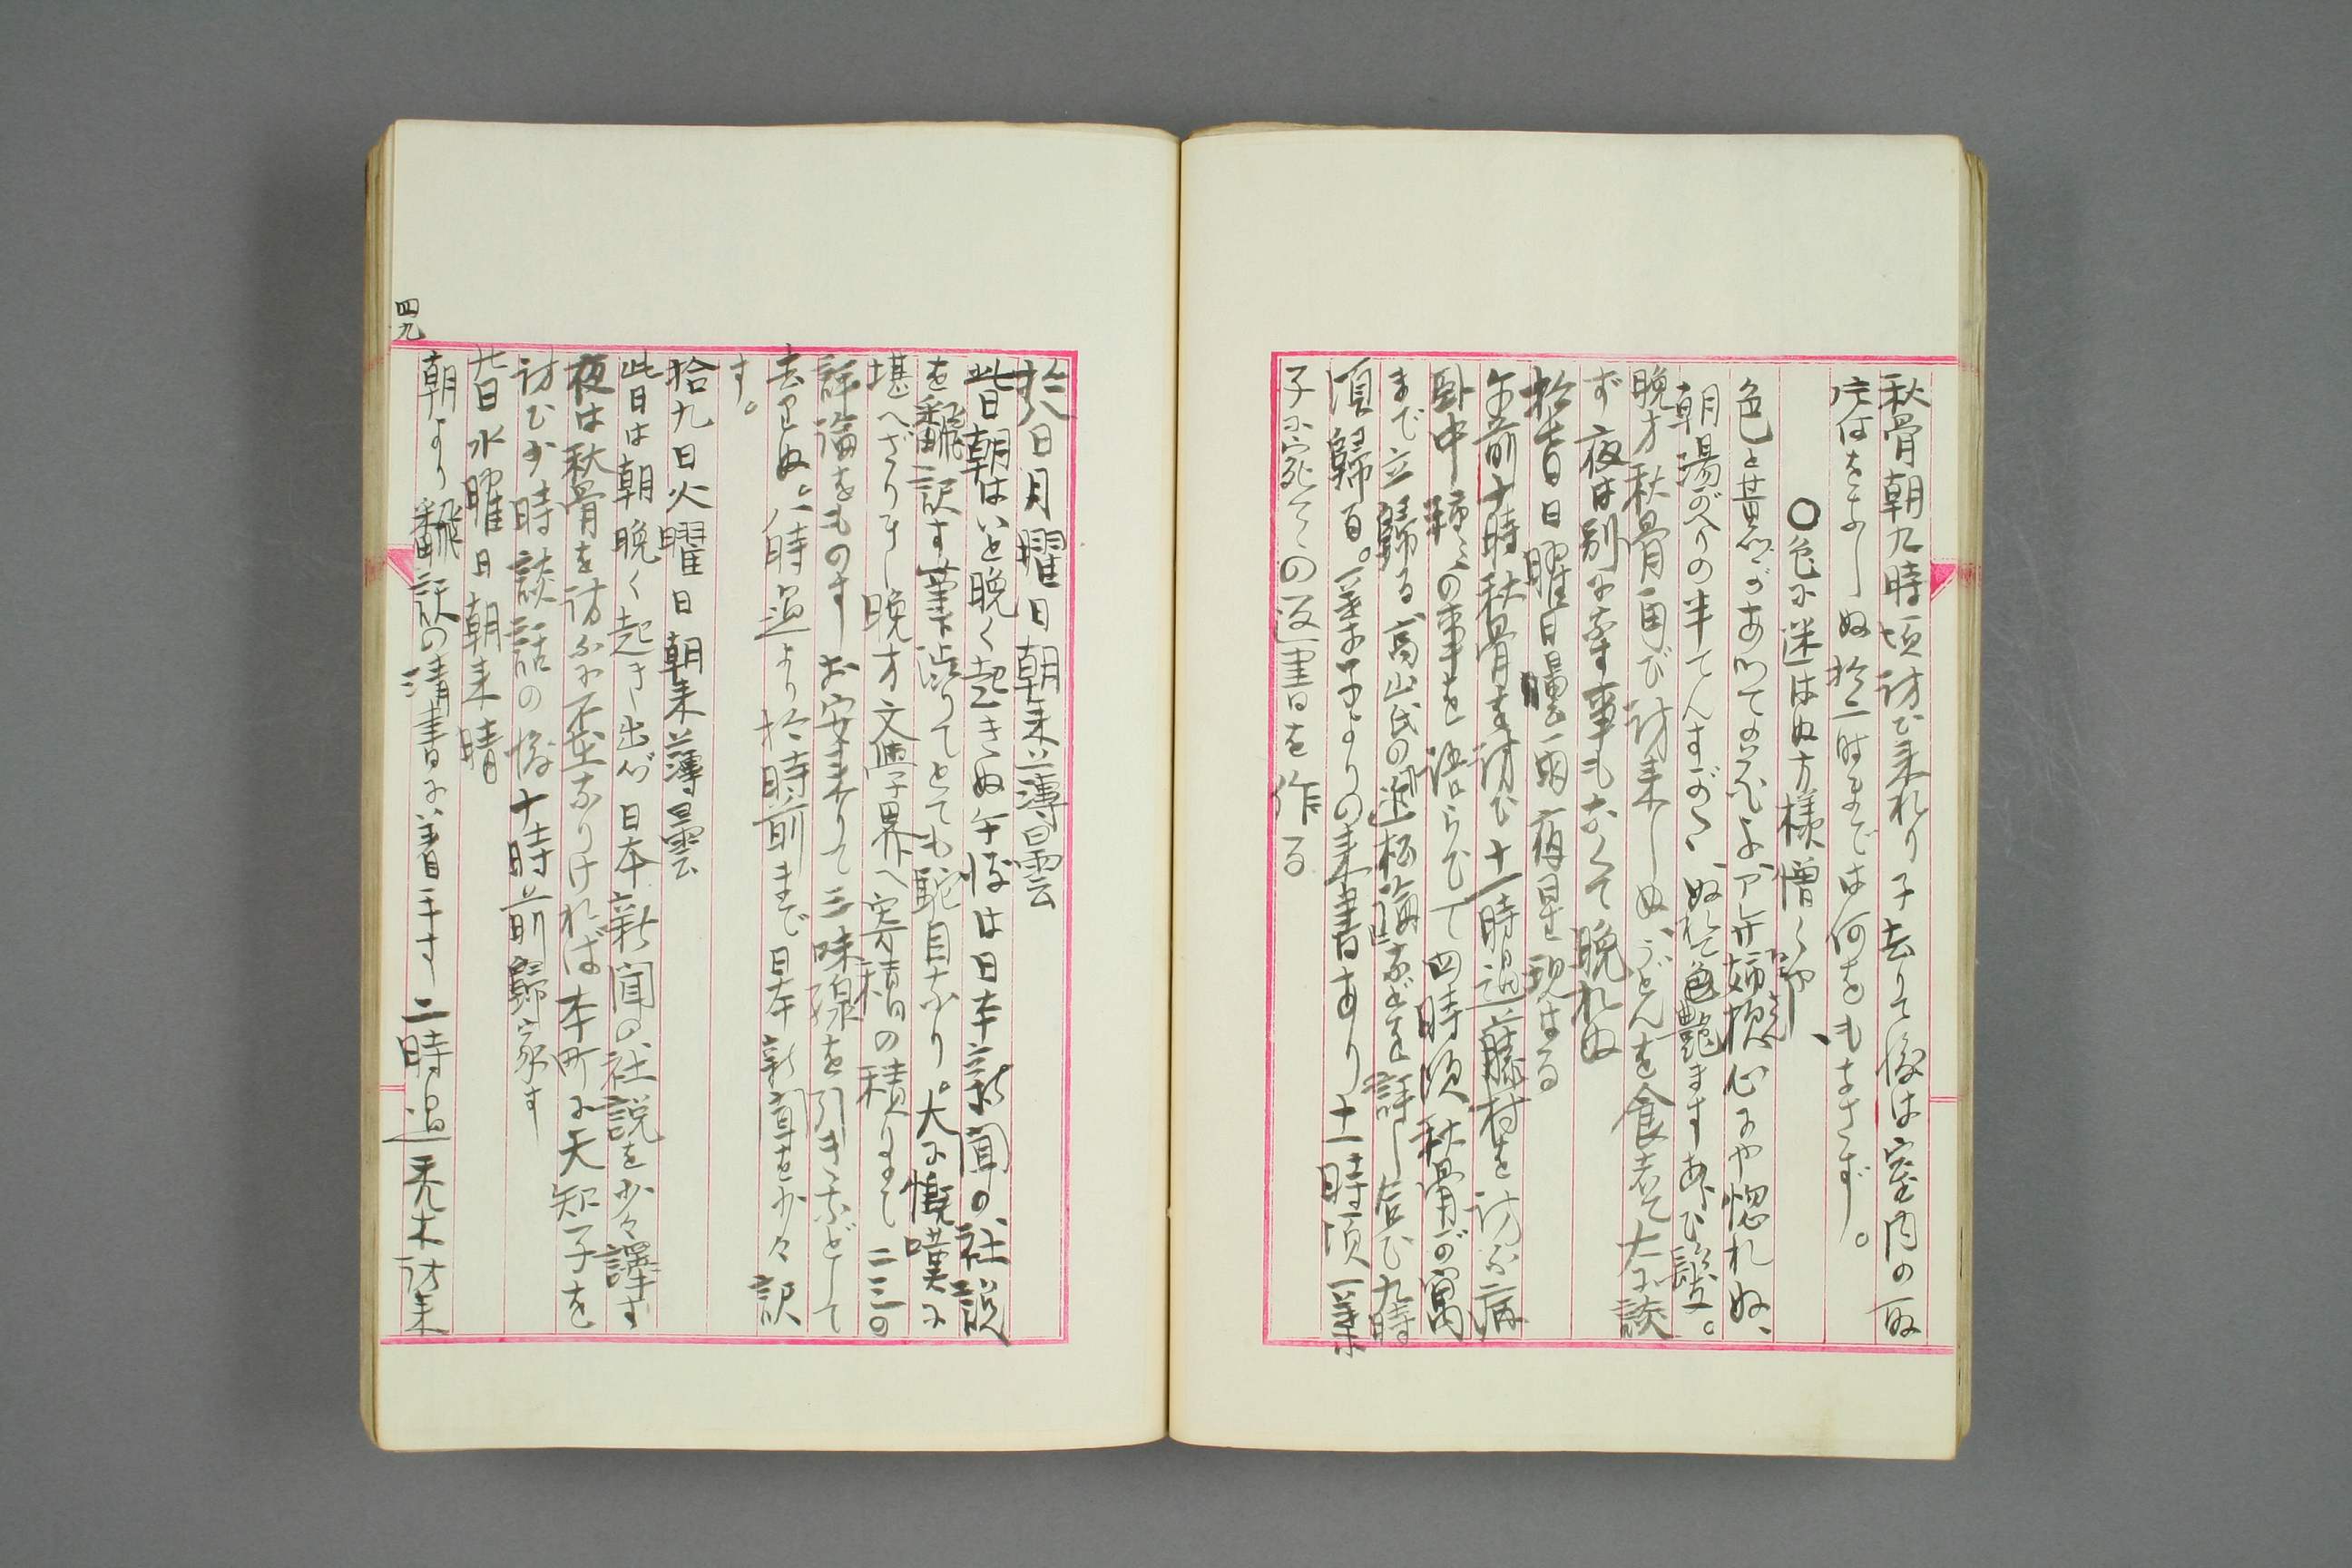 秋骨朝九時頃訪ひ来れり子去りて後は室内の取
片付をなしぬ拾二時までは何をもなさず。
〇色に迷はぬ方様憎くや
朝湯がへりの半てんすがた、ぬれて色艶ます
晩方秋骨再び訪来しぬ、うどんを食 大に談
ず夜は別に為す事もなくて晩れぬ
日曜日曇雨夜星現はる
午前十時秋骨を訪ひ十一時過藤村を訪ふ病
臥中種々の事を語らひて四時頃秋骨が寓
まで立歸る高山氏の近松論などを評し合ひ九時
頃歸宿。一葉子よりの来書あり十一時頃一葉
子に宛てゝの返書を作る
拾八日月曜日朝来薄曇
此日朝はいと晩く起きぬ午後は日本新聞の社説
を飜訳す筆渋りてとても駄目なり。大に慨嘆に
堪へざりき晩方文學界へ寄稿の積りにて二三の
評論をものすお安来りて三味線を引きなどして
去りぬ。八時過より拾時前まで日本新聞を少々訳
す。
拾九日火曜日朝来薄曇
此日は朝晩く起き出づ日本新聞の社説を少々譯す
夜は秋骨を訪ふに不在なりければ本町に天知子を
訪ひ少時談話の後十時前歸家す
廿日水曜日朝来晴
朝より飜訳の清書に着手す二時過禿木訪来
四九